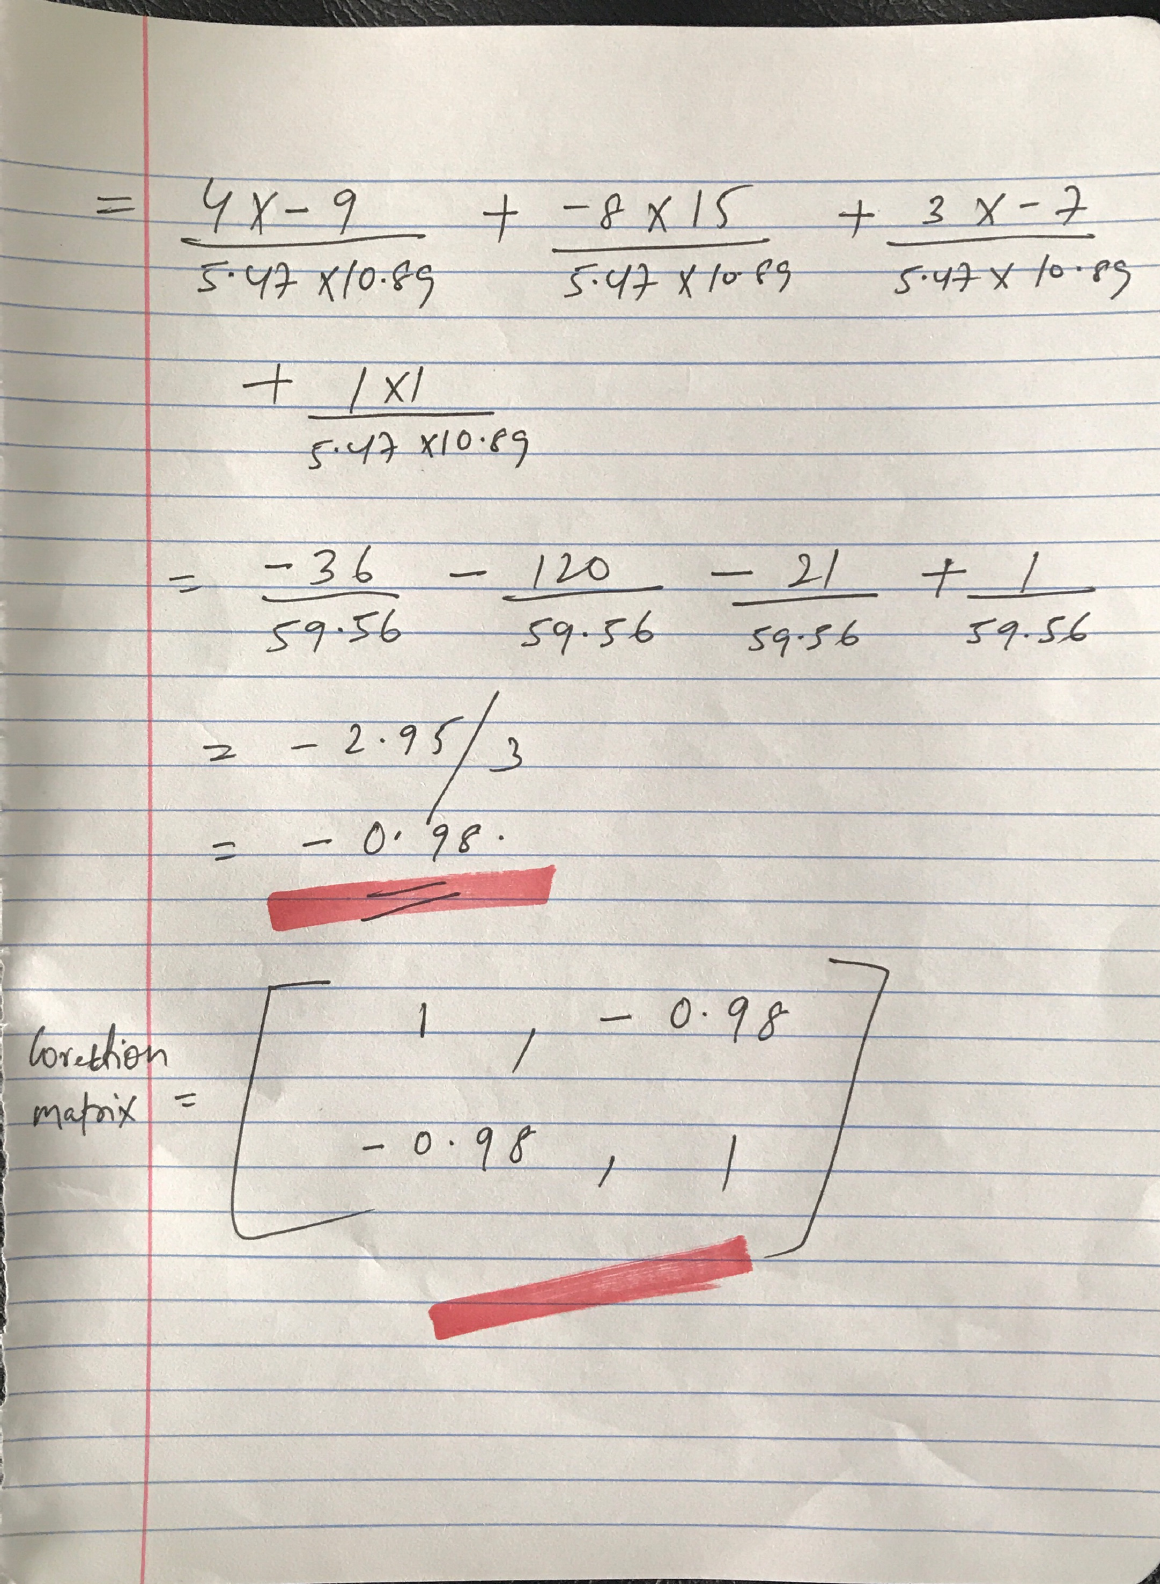 = 4 x - 9 / 5.47 x 10.89 + -8 x 15 / 5.47 x 10.89 + 3 x - 7 / 5.47 x 10.89
+ 1 x 1 / 5.47 x 10.89
= - 36 / 59.56 - 120 / 59.56 - 21 / 59.56 + 1 / 59.56
= - 2.95 / 3
= - 0.98.
1 , - 0.98
Corelation
matrix =
- 0.98 , 1